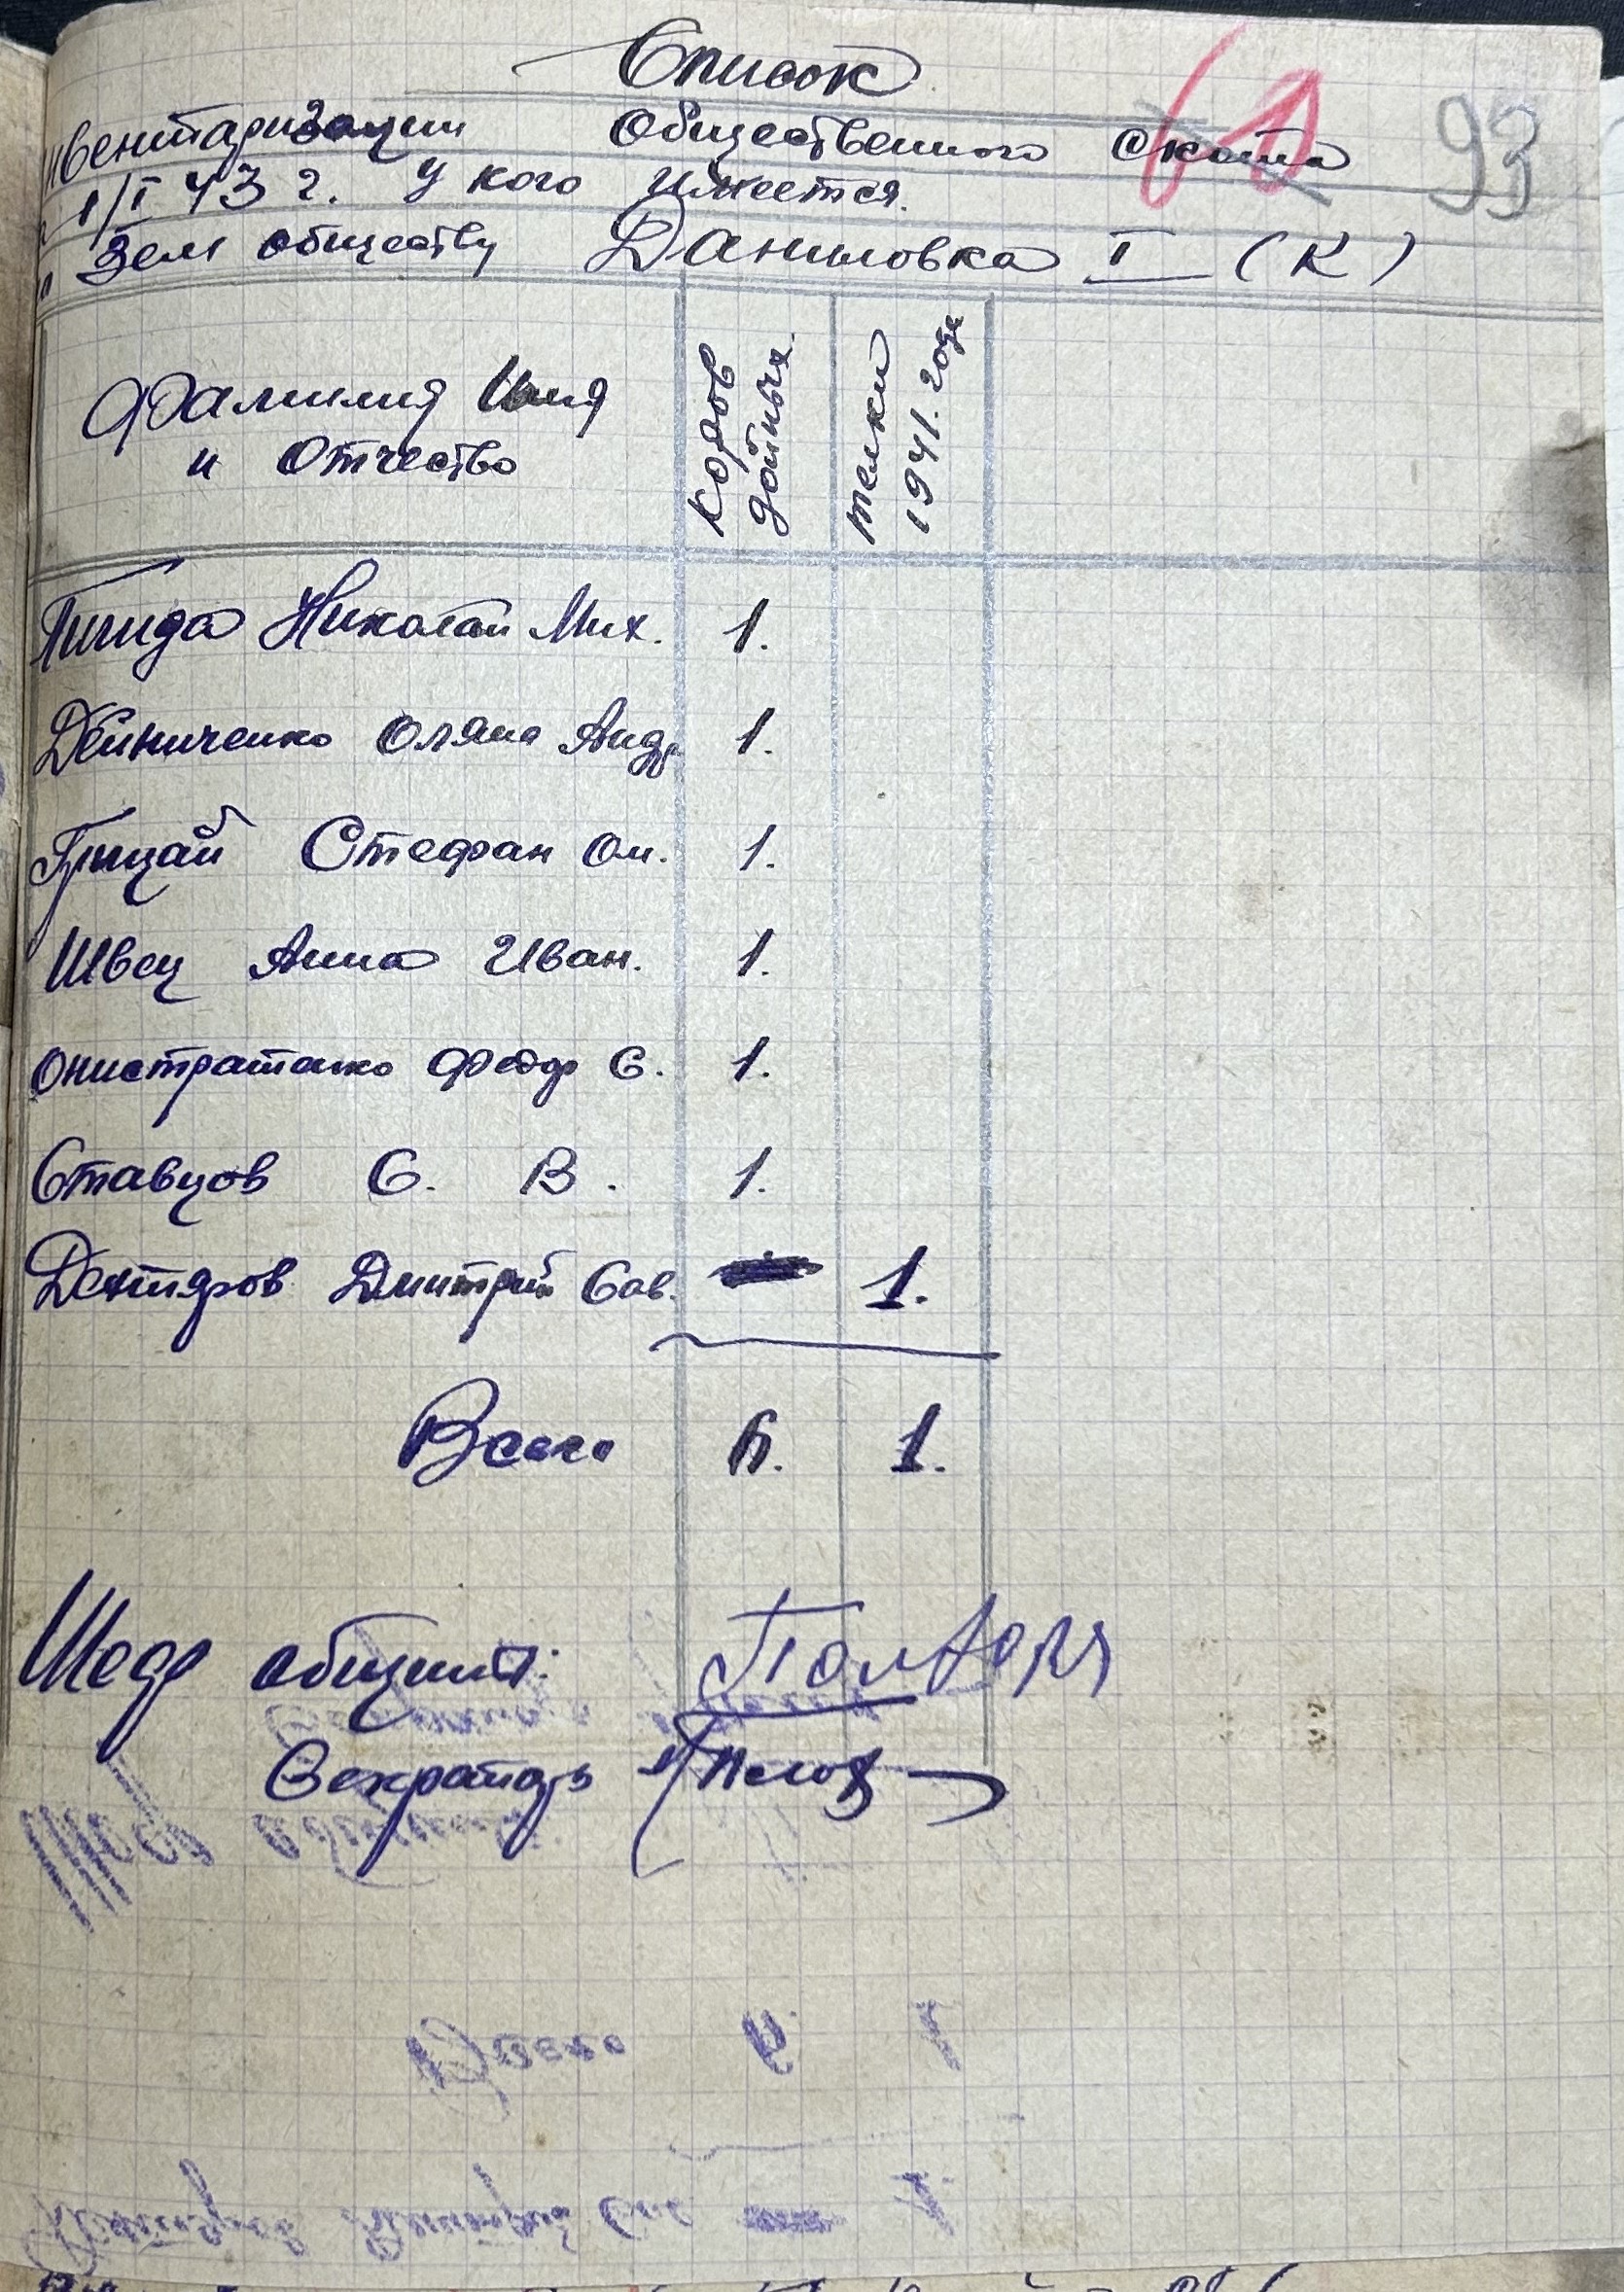 Список
инвентаризации Общественного Скота
на 1/I 43 г. у кого имеется.
по Зем обществу Даниловка I (К)
61
93
Фамилия Имя
и Отчество
Коров
дойных.
телки
1941. года
Николай Мих. 1.
Дейниченко Оляна Андр 1.
Грицай Стефан Ом. 1.
Швец Анна Иван. 1.
Онистратенко Федор С. 1.
Ставцов С. В. 1.
Дехтяров Дмитрий Сав. 1.
Всего 6. 1.
общины:
Секратарь